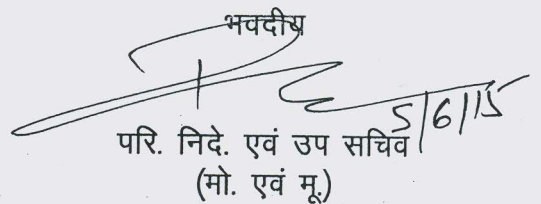 भवदीय
5/6/15
परि. निदे. एवं उप सचिव
(मो. एवं मू.)